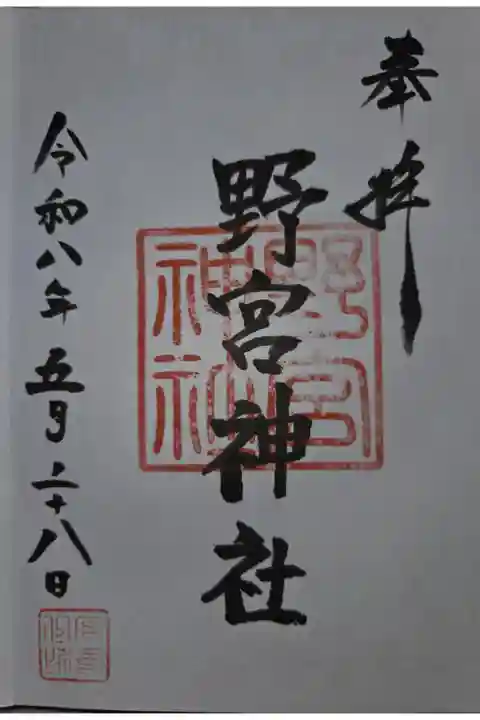 奉拝
野宮神社
野宮神社
令和八年五月二十八日